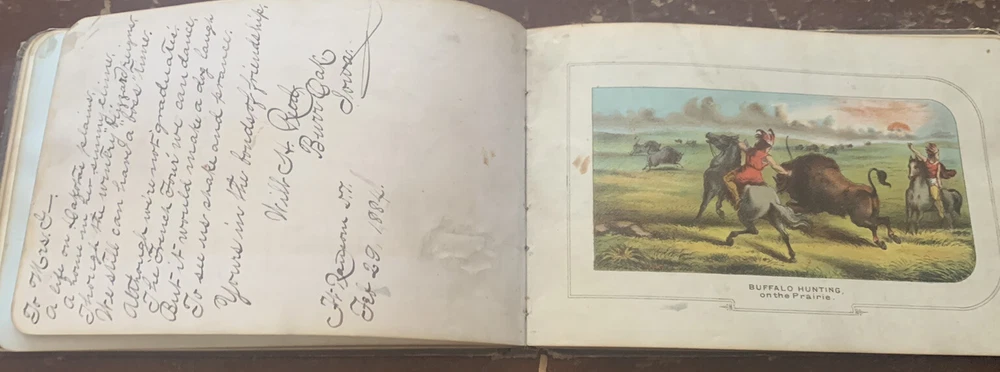 To Mrs. C—
A life on Dakota's plains.
A home in her sunny clime.
Though the wintry "Blizzard" reigns
We still can have a "boss" time.
Although we're not graduates.
The French Four we can dance.
But it would make a dog laugh
To see us shake and prance.
Yours in the bonds of friendship,
Will H. Reed
Burr Oak
Iowa.
Ft. Ransom D.T.
Feb 29, 1884.
BUFFALO HUNTING,
on the Prairie.